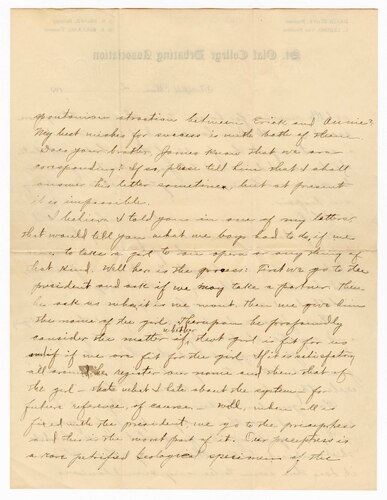 St. Olaf College Debating Association
spontanious atraction between Erick and Annie?
My best wishes for success is with both of them.
Does your brother James know that we are
corresponding? If so, please tell him that I shall
answer his letter sometime, but at present
it is impossible.
I believe I told you in one of my letters
that would tell you what we boys had to do, if we
to take a girl to an opera or any thing of
that kind. Well here is the process: First we go to the
president and ask if we may take a partner. Then
he ask us who it is we want. Then we give him
the name of the girl. Thereupon he profoundly
consider the matter if whether that girl is fit for us
and if we are fit for the girl. If it is satisfactory
all around he register our name and then that of
the girl – that's what I hate about the system – for
future reference, of course. – Well, when all is
fixed with the president, we go to the preceptress
and this is the worst part of it. Our preceptress is
a rare petrified Geological specimen of the